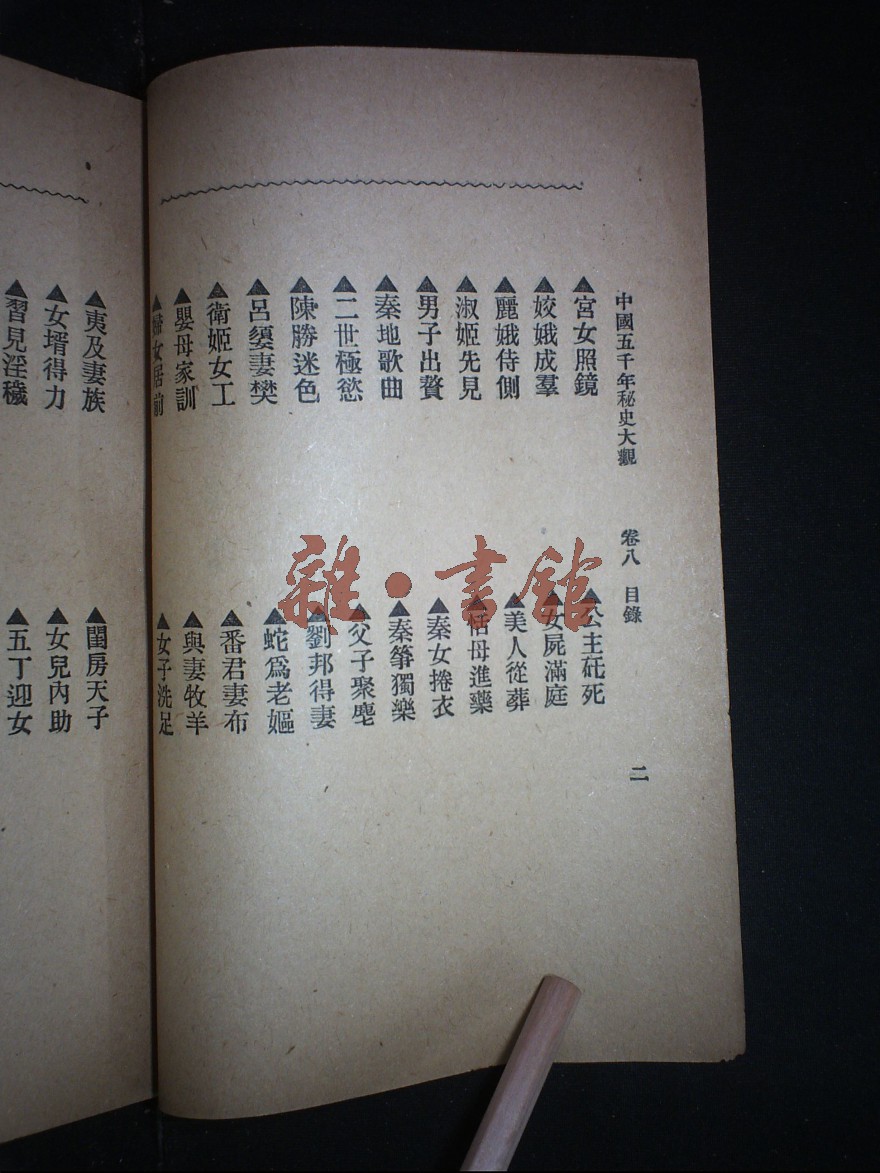 中國五千年秘史大觀 卷八 目錄 二
▲宮女照鏡 ▲公主矺死
▲姣娥成羣 ▲女屍滿庭
▲麗娥侍側 ▲美人從葬
▲淑姬先見 ▲恬母進藥
▲男子出贅 ▲秦女捲衣
▲秦地歌曲 ▲秦箏獨樂
▲二世極慾 ▲父子聚麀
▲陳勝迷色 ▲劉邦得妻
▲呂嬃妻樊 ▲蛇爲老嫗
▲衛姬女工 ▲番君妻布
▲嬰母家訓 ▲與妻牧羊
▲婦女居前 ▲女子洗足
▲夷及妻族 ▲閨房天子
▲女壻得力 ▲女兒內助
▲習見淫穢 ▲五丁迎女
雜·書館